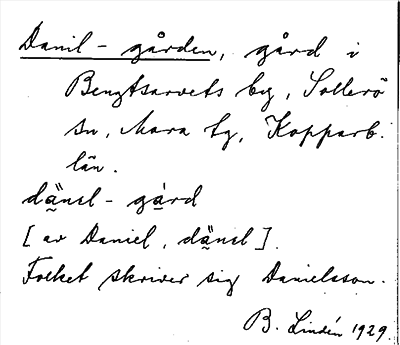 Danil-gården, gård i
Bengtsarvets by, Sollerö
sn, Mora tg, Kopparb.
län.
dä̰nel-gà̱rd
[av Daniel, dä̰nel].
Folket skriver sig Danielsson.
B. Lindén 1929.